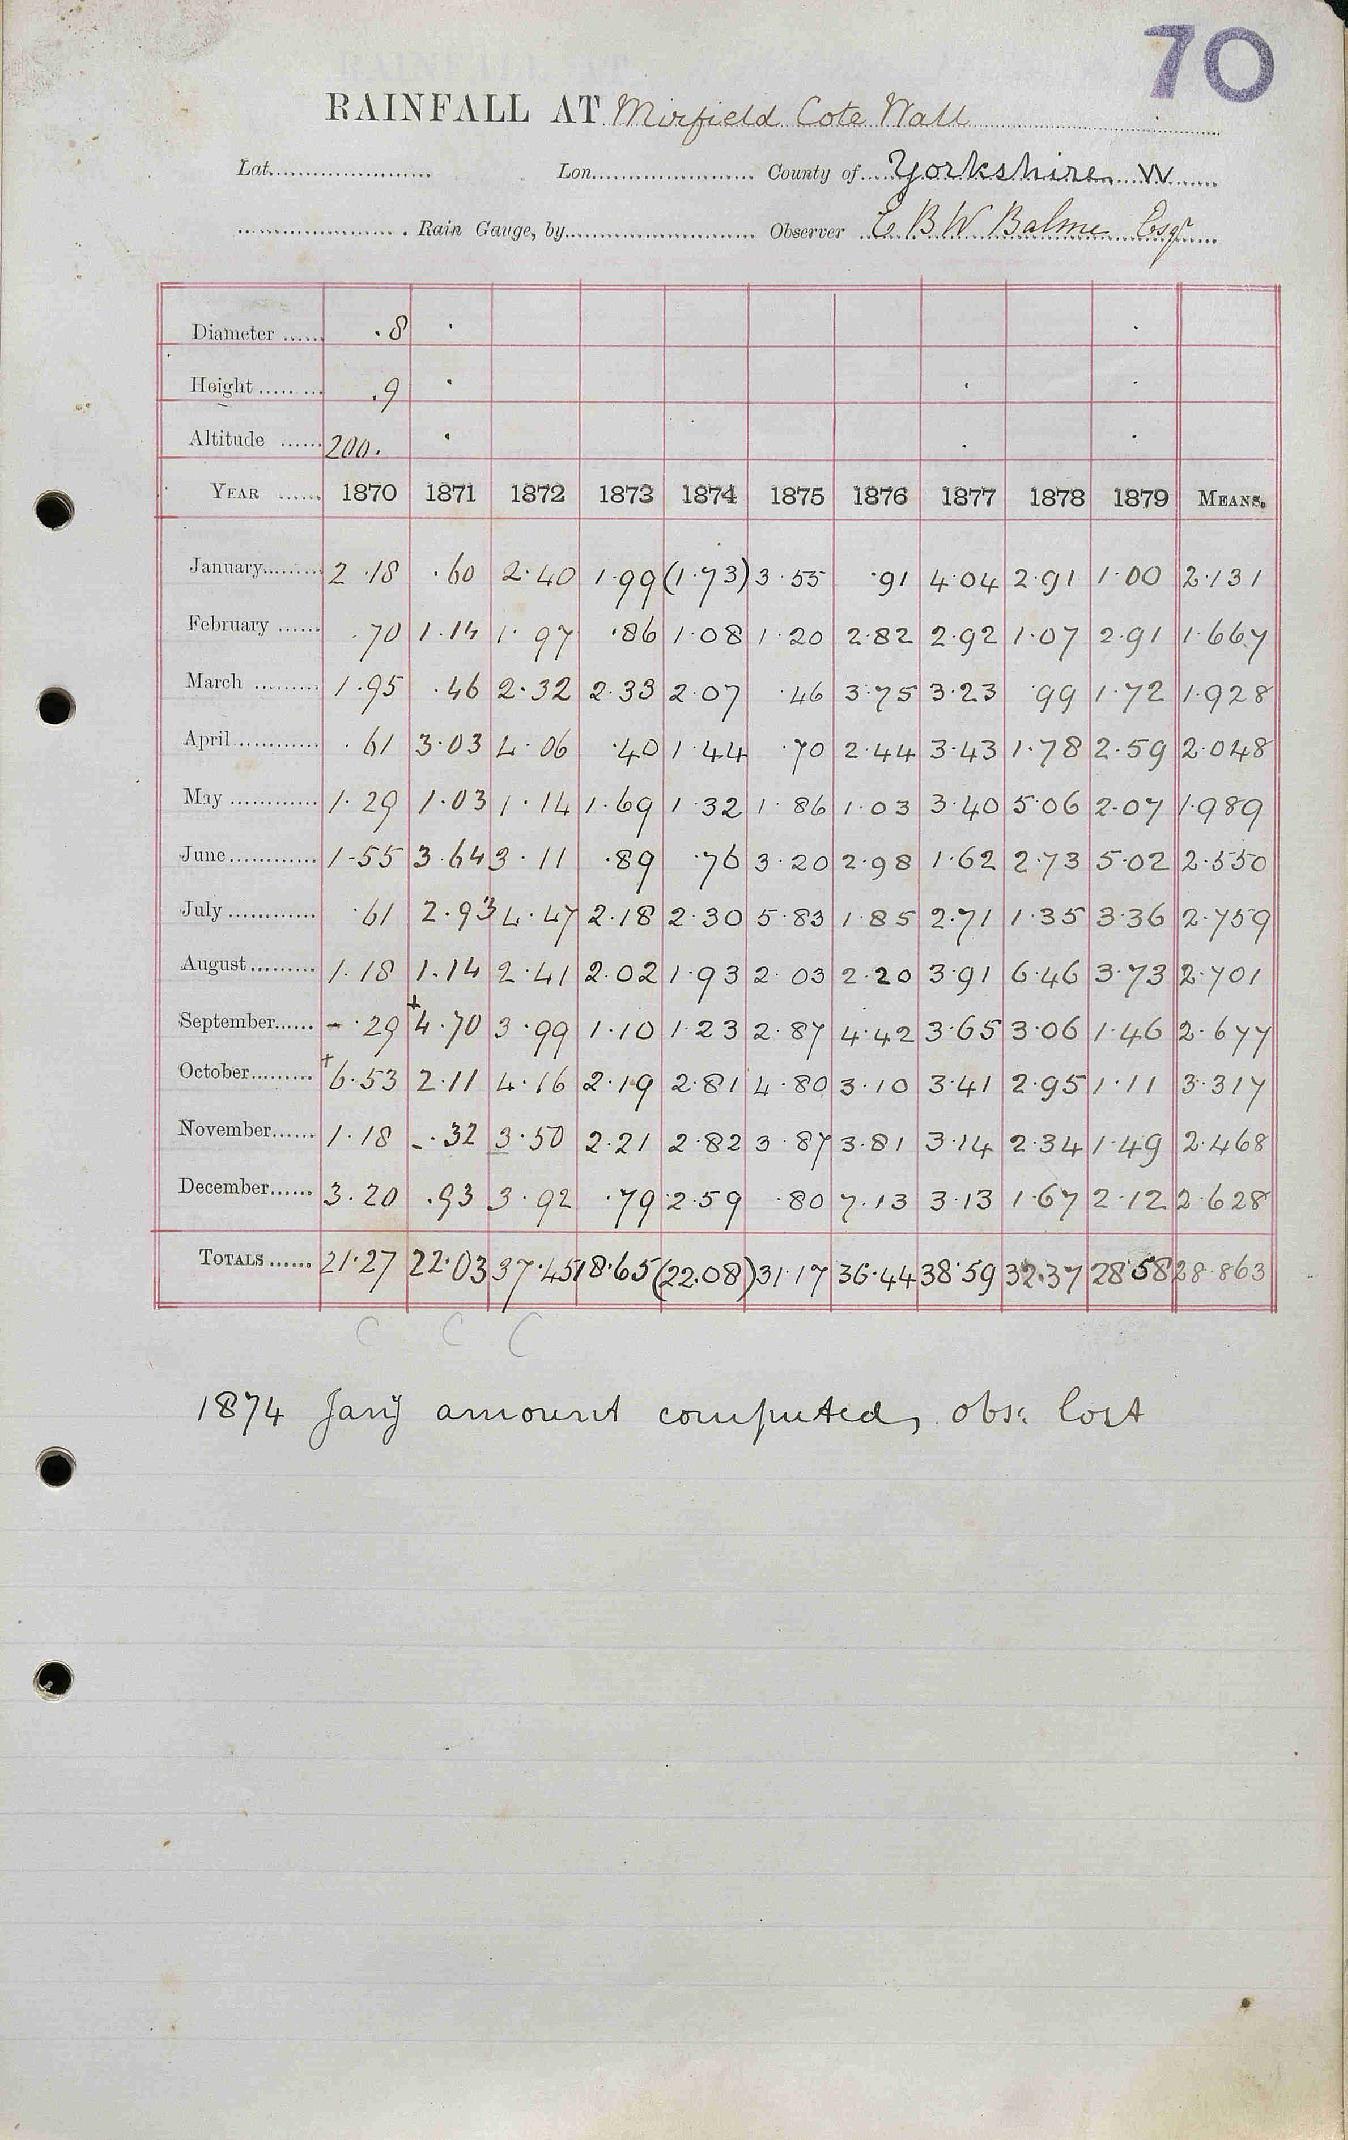 70
RAINFALL AT Mirfield Cote Wall
Lat. Lon. County of Yorkshire W
Rain Gauge, by Observer C B W Balme Esqr
Diameter ...... .8
Height ......... .9
Altitude ...... 200.
YEAR ...... 1870 1871 1872 1873 1874 1875 1876 1877 1878 1879 MEANS.
January......... 2.18 .60 2.40 1.99 (1.73) 3.55 .91 4.04 2.91 1.00 2.131
February ...... .70 1.14 1.97 .86 1.08 1.20 2.82 2.92 1.07 2.91 1.667
March ......... 1.95 .46 2.32 2.33 2.07 .46 3.75 3.23 .99 1.72 1.928
April............ .61 3.03 4.06 .40 1.44 .70 2.44 3.43 1.78 2.59 2.048
May ............ 1.29 1.03 1.14 1.69 1.32 1.86 1.03 3.40 5.06 2.07 1.989
June............ 1.55 3.64 3.11 .89 .76 3.20 2.98 1.62 2.73 5.02 2.550
July ............ .61 2.93 4.47 2.18 2.30 5.83 1.85 2.71 1.35 3.36 2.759
August......... 1.18 1.14 2.41 2.02 1.93 2.03 2.20 3.91 6.46 3.73 2.701
September...... - .29 +4.70 3.99 1.10 1.23 2.87 4.42 3.65 3.06 1.46 2.677
October......... +6.53 2.11 4.16 2.19 2.81 4.80 3.10 3.41 2.95 1.11 3.317
November...... 1.18 - .32 3.50 2.21 2.82 3.87 3.81 3.14 2.34 1.49 2.468
December...... 3.20 .93 3.92 .79 2.59 .80 7.13 3.13 1.67 2.12 2.628
TOTALS ...... 21.27 22.03 37.45 18.65 (22.08) 31.17 36.44 38.59 32.37 28.58 28.863
C C C
1874 Jany amount computed, obs: lost